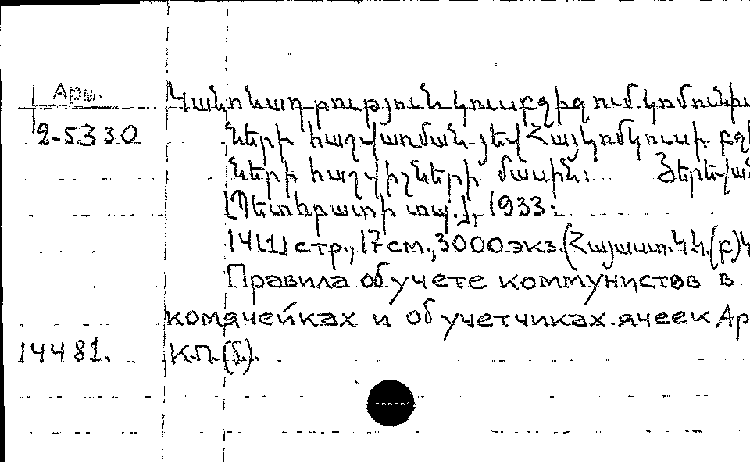 Арм.
2-5330
Կանոնադրություն կուսբջիջում կոմունիս
ների հաշվառման յեվ Հայկոմկուսի բջի
ների հաշվիչների մասին: Յերեվան
[Պետհրատի տպ.], 1933:
14[1] стр., 17 см., 3000 экз. (Հայաստ. Կ.Կ. (բ) Կ
Правила об учете коммунистов в
комячейках и об учетчиках ячеек Ар
К.П.(б).
14481.